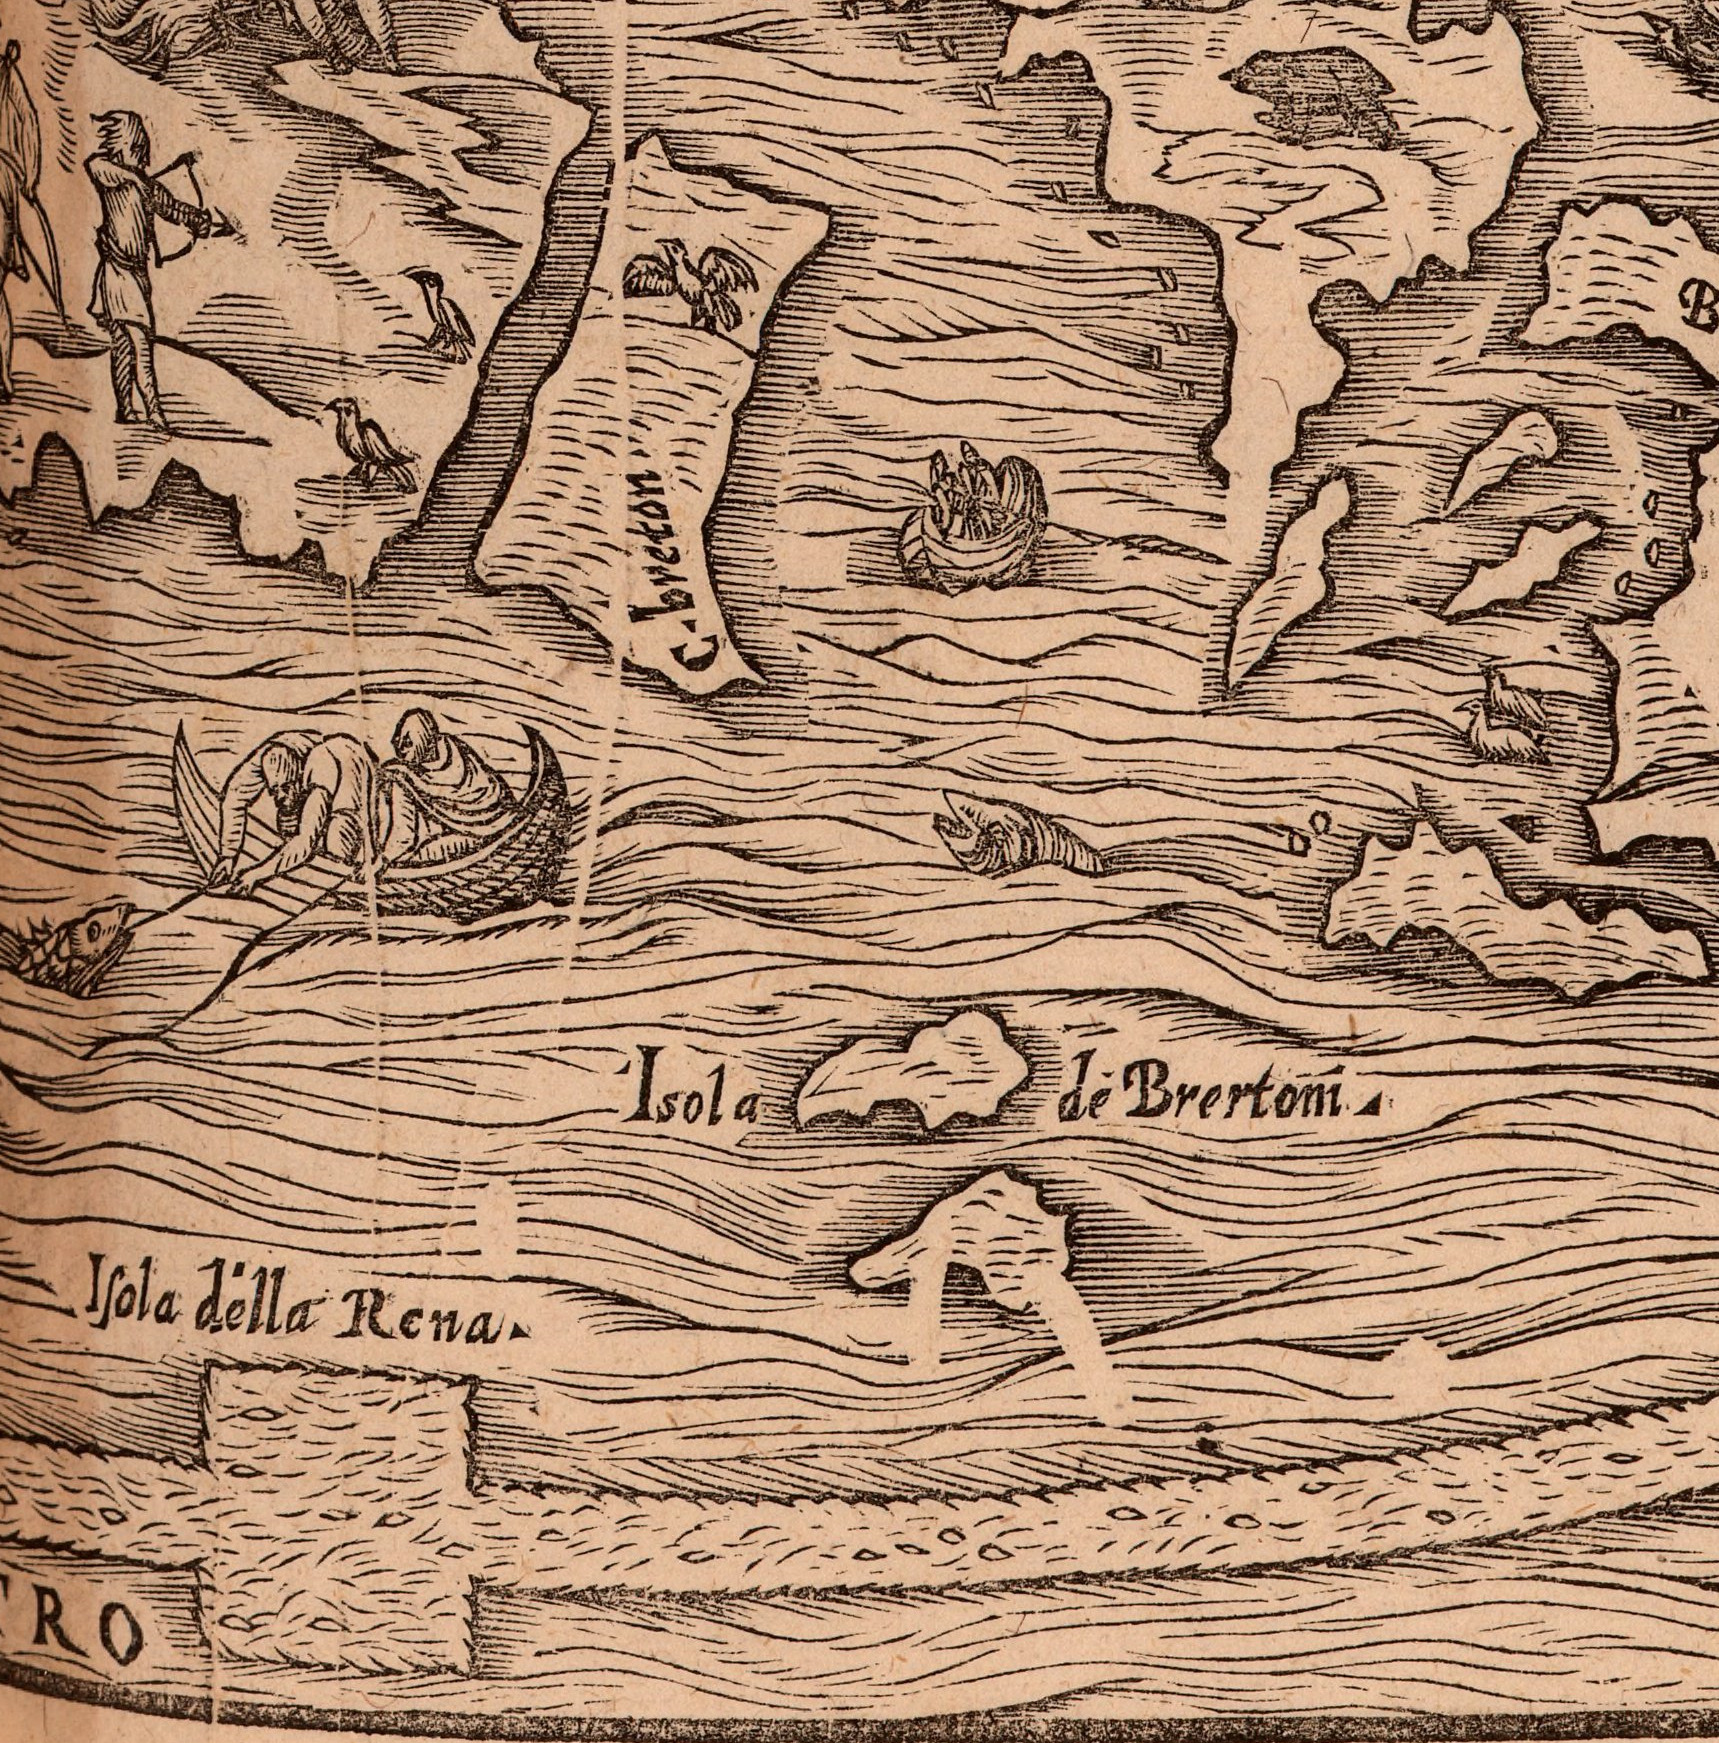 B
C. breton
Isola de Brertoni
Iſola della Rena.
TRO